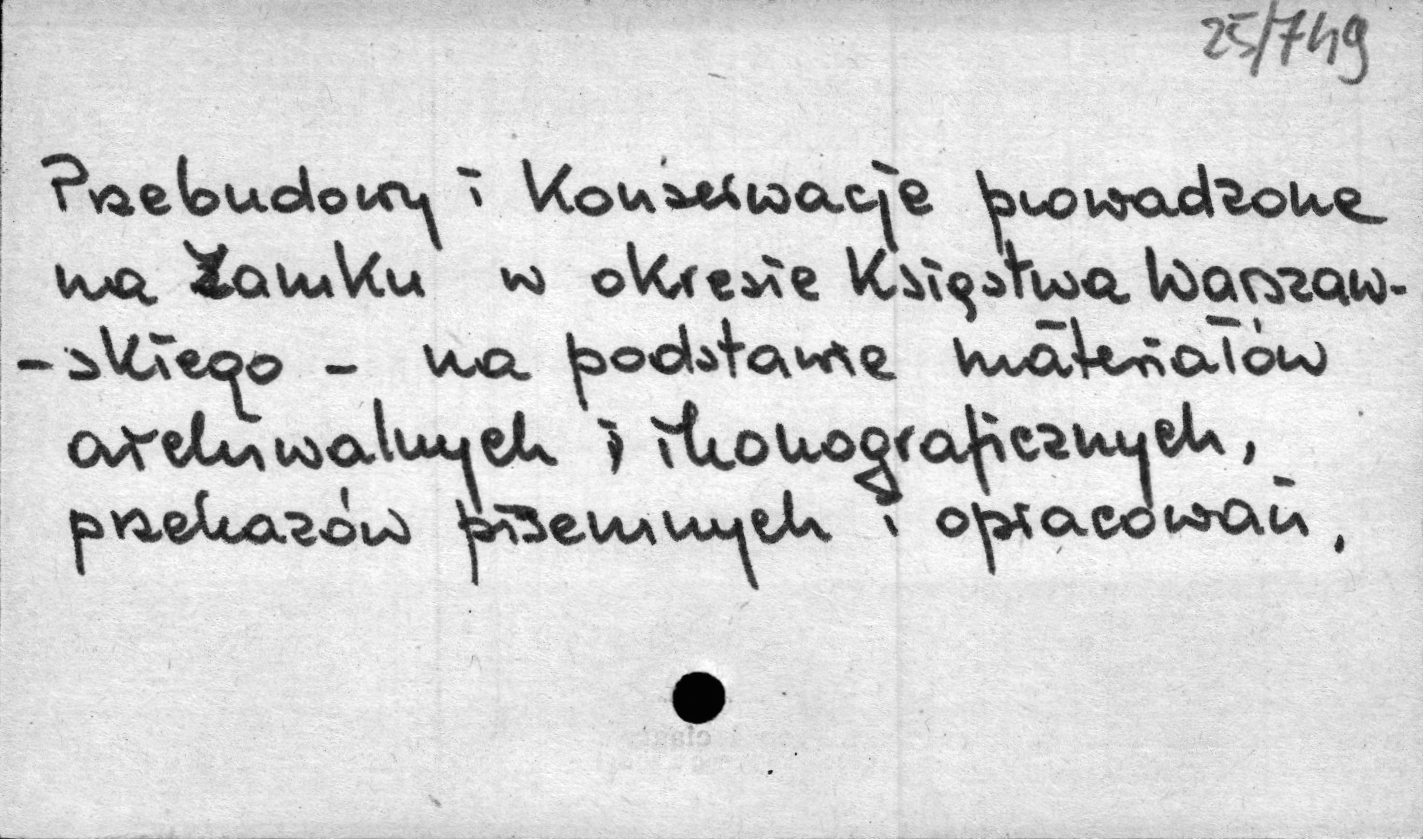 25/749
Przebudowy i Konserwacje prowadzone
na Zamku w okresie Księstwa Warszaw-
-skiego - na podstawie materiałów
archiwalnych i ikonograficznych,
przekazów pisemnych i opracowań,